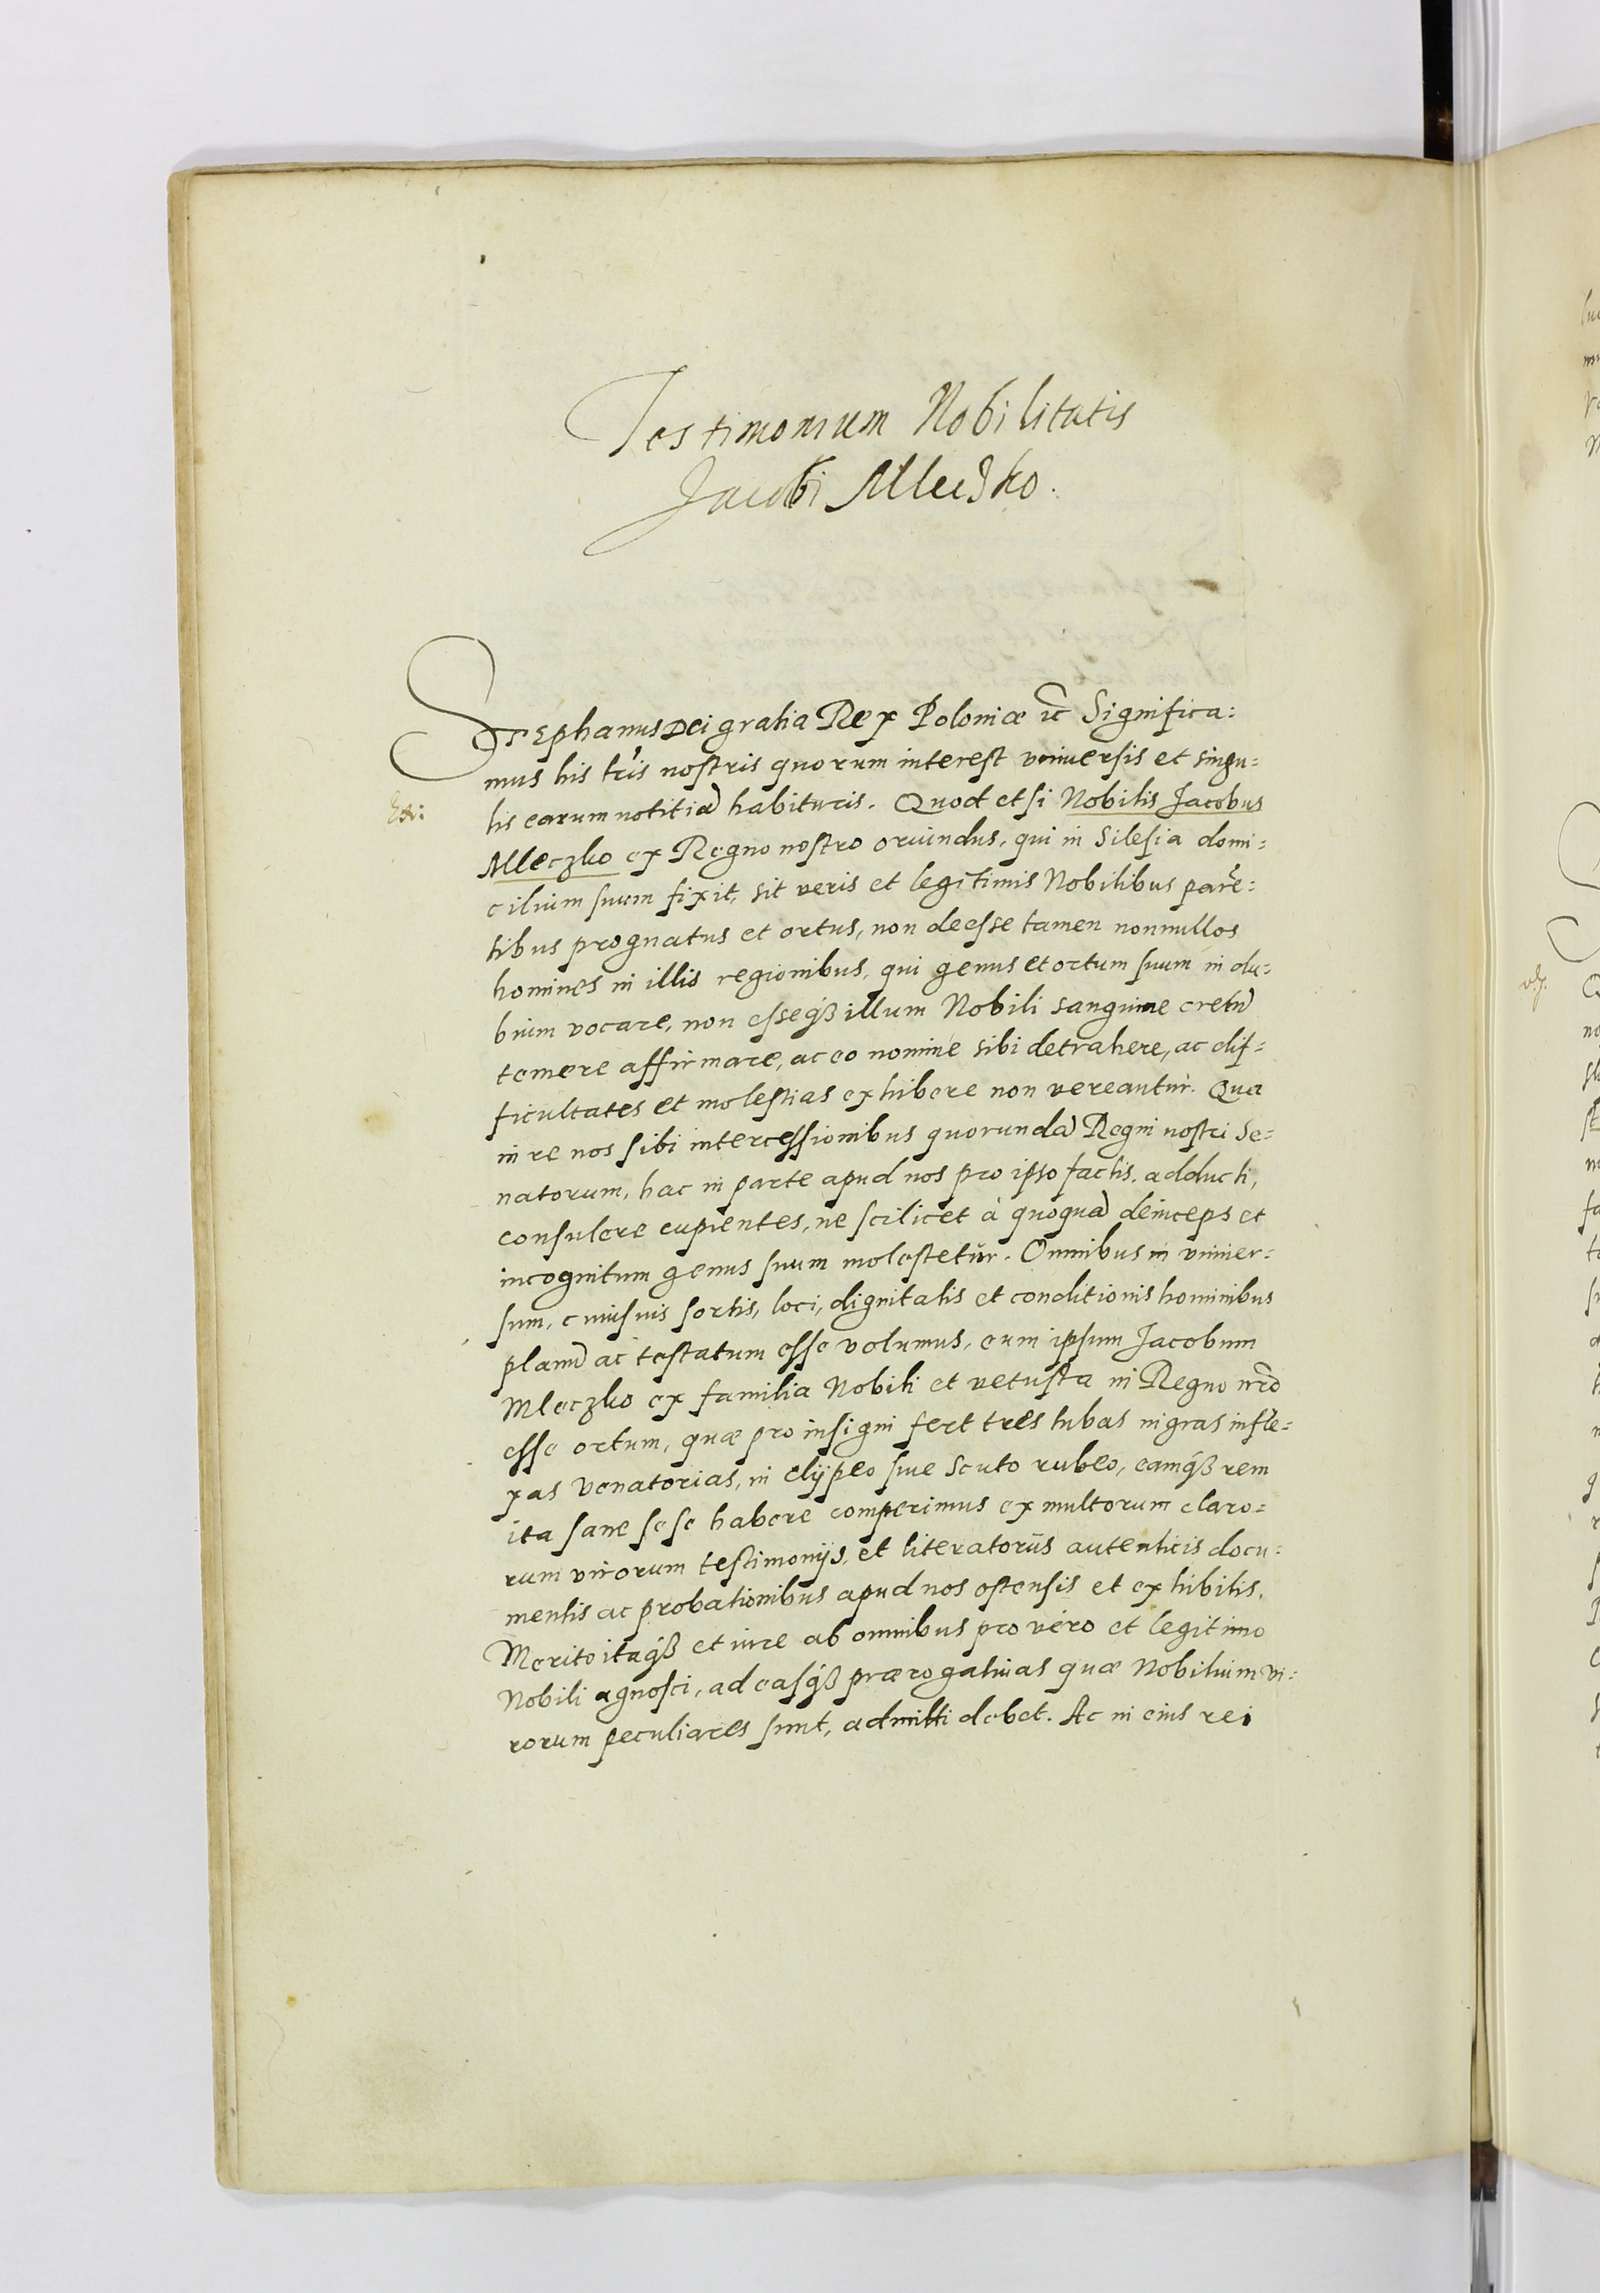 Testimonium Nobilitatis
Jacobi Mleczko.
Stephanus Dei gratia Rex Poloniæ ꝛc̃ Significa:
mus his lr̃is nostris quorum interest vniuersis et singu=
lis earum notitiã habituris. Quod etsi Nobilis Jacobus
Mleczko ex Regno nostro oriundus, qui in Silesia domi:
cilium suum fixit, sit veris et legitimis Nobilibus parẽ:
tibus prognatus et ortus, non deesse tamen nonnullos
homines in illis regionibus, qui genus et ortum suum in du:
bium vocare, non esseq́ʒ illum Nobili sanguine cretũ
temere affirmare, ac eo nomine sibi detrahere, ac dif=
ficultates et molestias exhibere non vereantur. Qua
in re nos sibi intercessionibus quorundã Regni nostri Se=
natorum, hac in parte apud nos pro ipso factis, adducti,
consulere cupientes, ne scilicet à quoquã deinceps et
incognitum genus suum molestetur. Omnibus in vniuer:
sum, cuiusuis sortis, loci, dignitatis et conditionis hominibus
planũ ac testatum esse volumus, eum ipsum Jacobum
Mleczko ex familia Nobili et vetusta in Regno nr̃o
esse ortum, quæ pro insigni fert tres tubas nigras infle=
xas venatorias, in clypeo siue scuto rubeo, eamq́ʒ rem
ita sane sese habere comperimus ex multorum claro=
rum virorum testimonijs, et literatorijs autenticis docu:
mentis ac probationibus apud nos ostensis et exhibitis.
Merito itaq́ʒ et iure ab omnibus pro vero et legitimo
Nobili agnosci, ad easq́ʒ prærogatiuas quæ Nobilium vi:
rorum peculiares sunt, admitti debet. Ac in eius rei